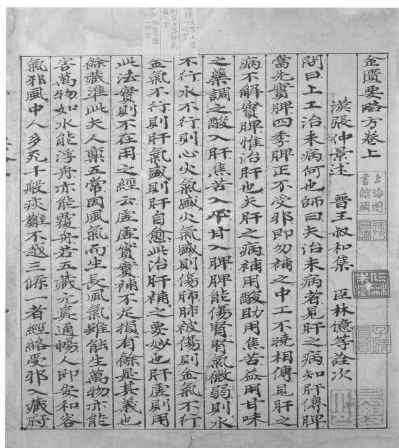 金匱要略方卷上
漢張仲景述 晉王叔和集 臣林億等詮次
問曰上工治未病何也師曰夫治未病者見肝之病知肝傳脾
當先實脾四季脾王不受邪即勿補之中工不曉相傳見肝之
病不解實脾惟治肝也夫肝之病補用酸助用焦苦益用甘味
之藥調之酸入肝焦苦入心甘入脾脾能傷腎腎氣微弱則水
不行水不行則心火氣盛火氣盛則傷肺肺被傷則金氣不行
金氣不行則肝氣盛則肝自愈此治肝補之要妙也肝虛則用
此法實則不在用之經云虛虛實實補不足損有餘是其義也
餘藏準此夫人稟五常因風氣而生長風氣雖能生萬物亦能
害萬物如水能浮舟亦能覆舟若五藏元真通暢人即安和客
氣邪風中人多死千般疢難不越三條 者經絡受邪入藏府
上海圖書館藏